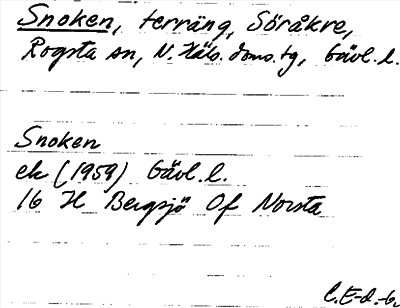 Snoken, terräng, Söråkre,
Rogsta sn, N. Häls. doms.tg, Gävl. l.
Snoken
ek (1959) Gävl. l.
16 H Bergsjö Of Norsta